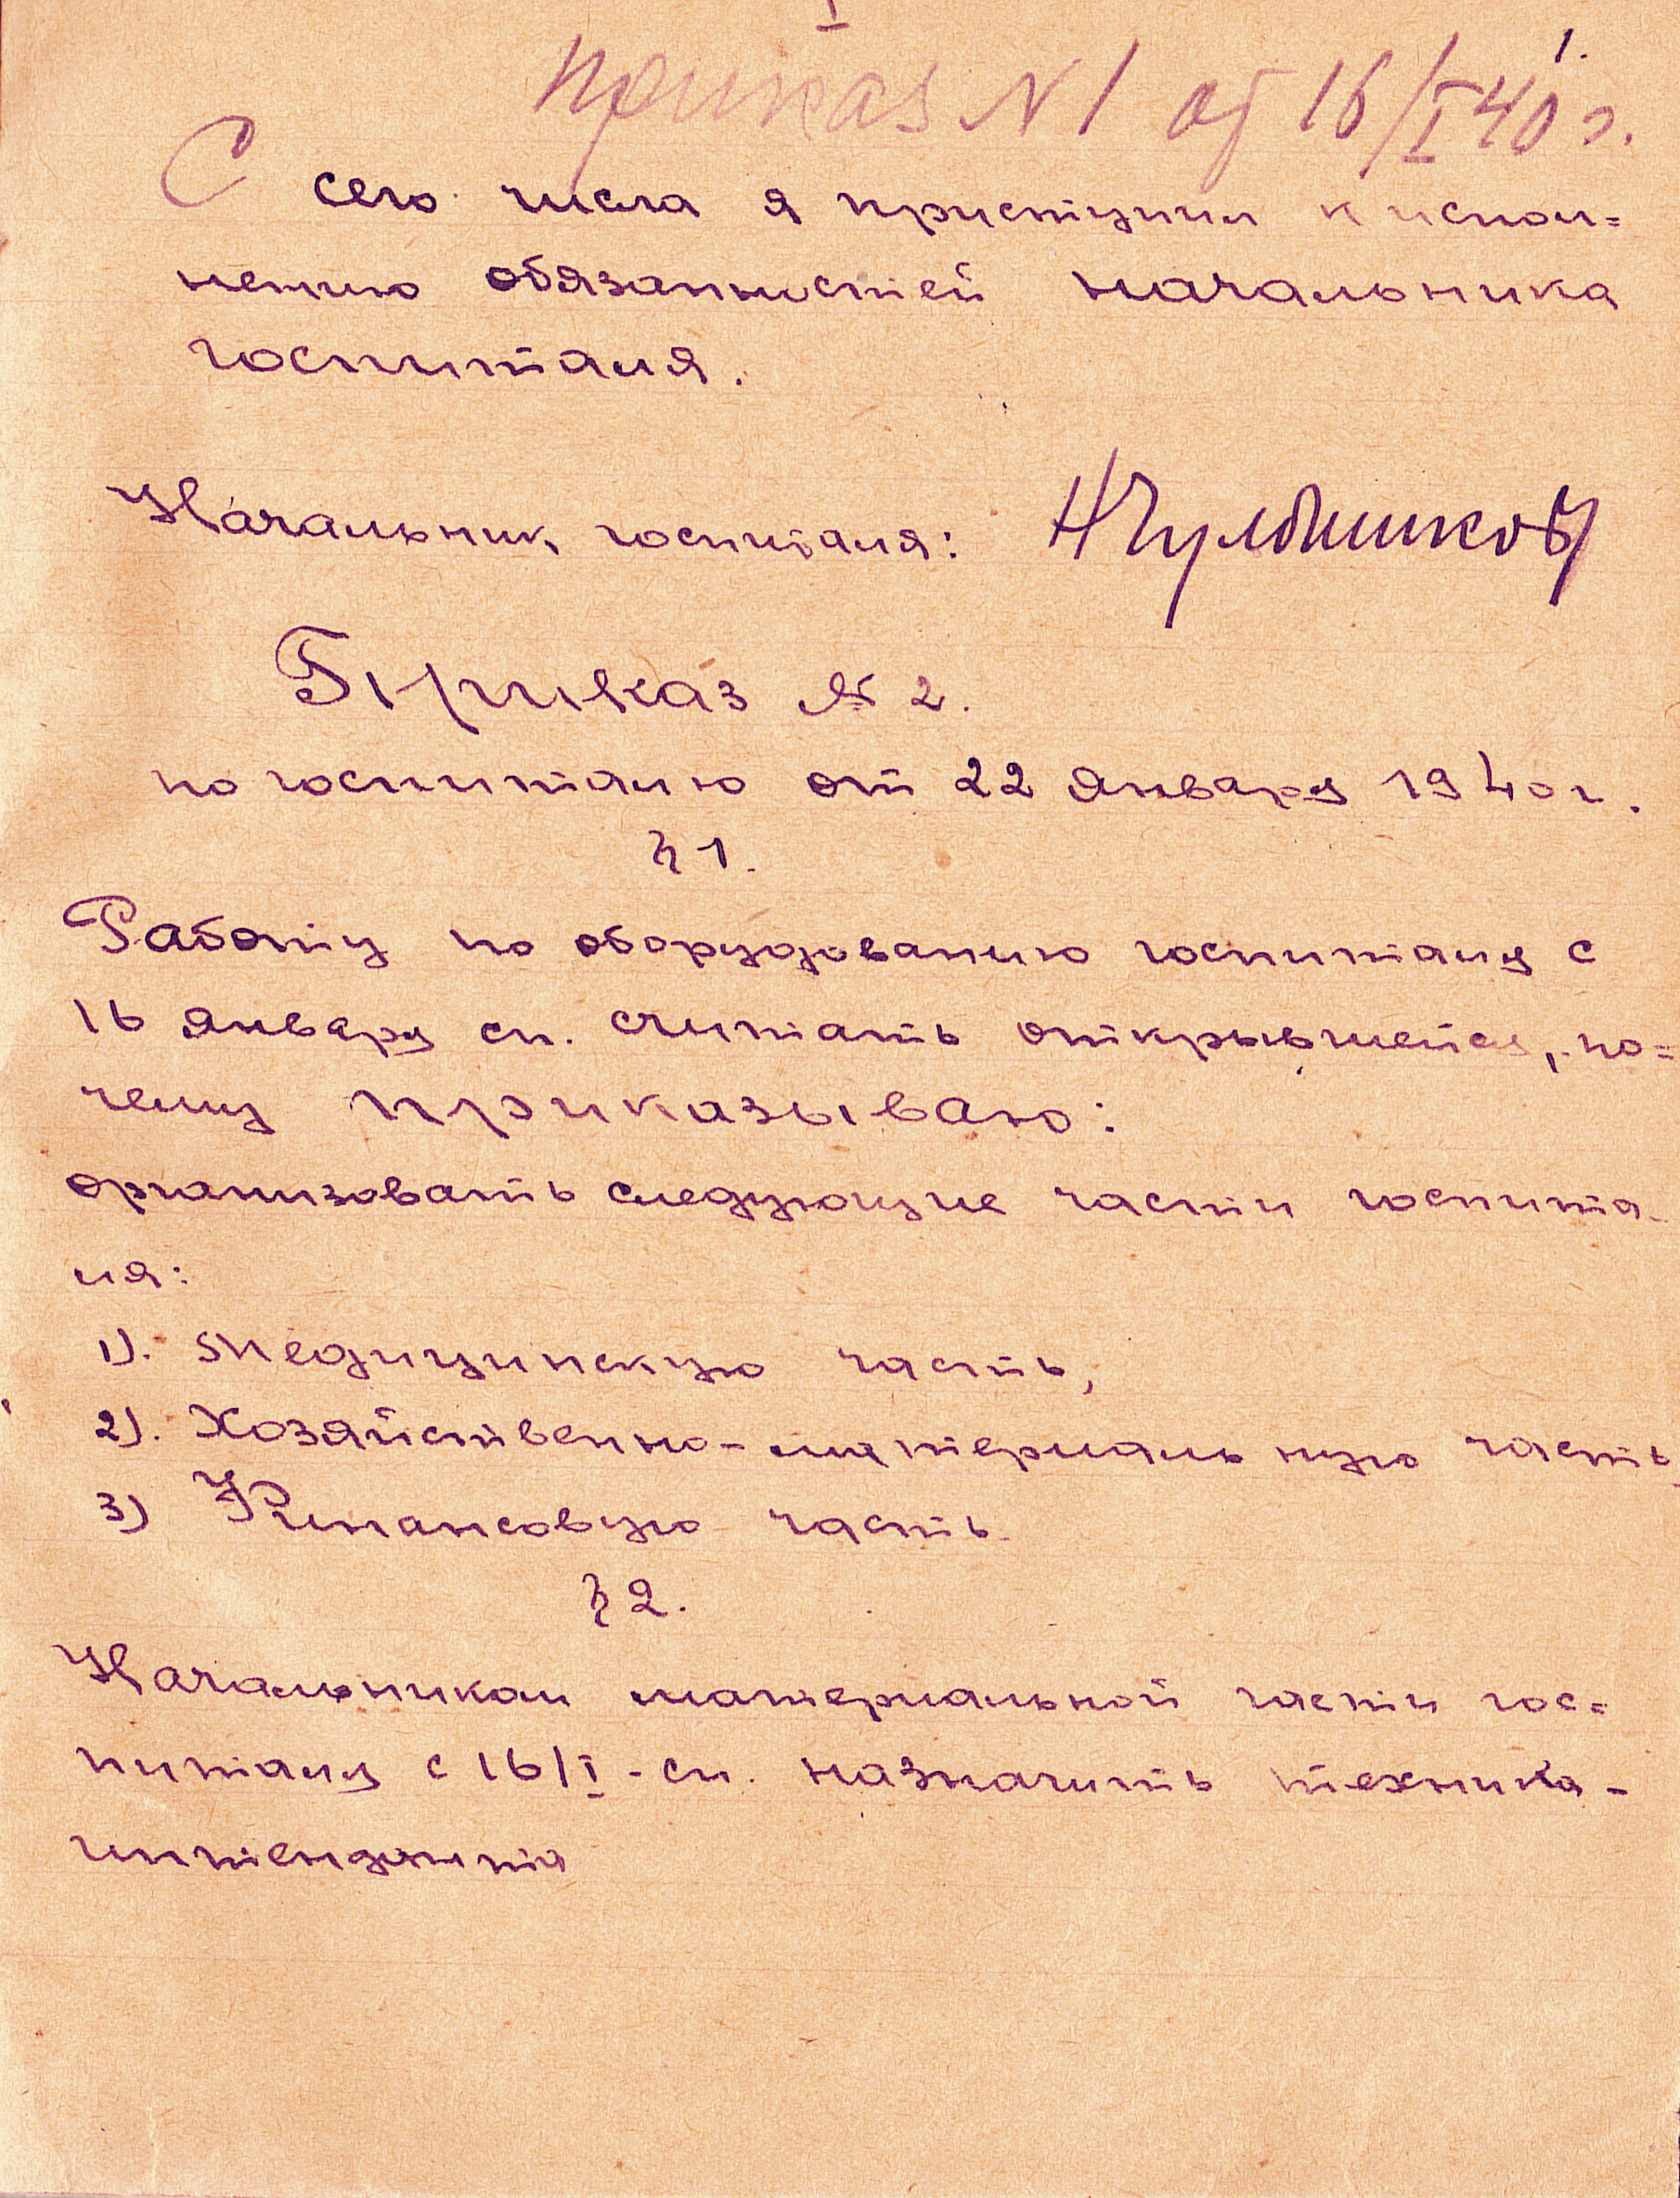 I
1.
Приказ N 1 от 16/I 40 г.
С сего числа я приступил к испол=
нению обязанностей начальника
госпиталя.
Начальник госпиталя:
Приказ № 2.
по госпиталю от 22 января 1940 г.
§ 1.
Работу по оборудованию госпиталя с
16 января сг. считать открывшейся, по=
чему приказываю:
организовать следующие части госпита-
ля:
1). Медицинскую часть,
2). Хозяйственно-материальную часть
3) Финансовую часть
§ 2.
Начальником материальной части гос=
питаля с 16/I - сг. назначить техника-
интенданта